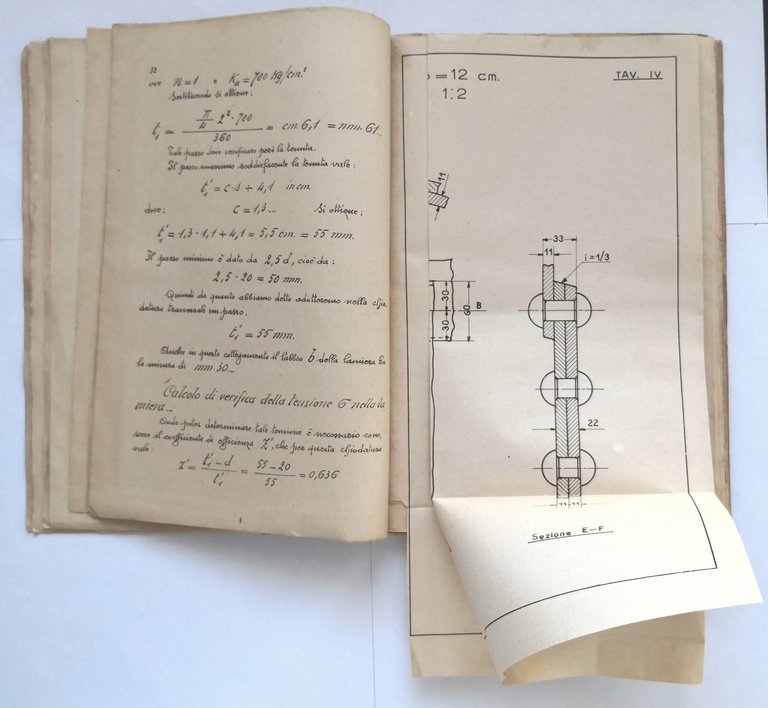 32
ove n = 1 e Kd = 700 kg/cm.²
Sostituendo si ottiene:
t₁ = (π/4 2² · 700) / 360 = cm. 6,1 = mm. 61_
Tale passo deve verificare però la tenuta.
Il passo massimo soddisfacente la tenuta vale:
t'₁ = c·s + 4,1 in cm.
dove: c = 1,3_ Si ottiene:
t'₁ = 1,3 · 1,1 + 4,1 = 5,5 cm. = 55 mm.
Il passo minimo è dato da 2,5 d, cioè da:
2,5 · 20 = 50 mm.
Quindi da quanto abbiamo detto adotteremo nella chio-
datura trasversale un passo.
t'₁ = 55 mm.
Anche in questo collegamento il labbro b della lamiera ha
la misura di mm. 30_
Calcolo di verifica della tensione σ nella la
miera_
Onde poter determinare tale tensione è necessario cono-
scere il coefficiente di efficienza Z', che per questa chiodatura
vale:
Z' = (t'₁ - d) / t'₁ = (55 - 20) / 55 = 0,636
= 12 cm. TAV. IV
1:2
11
33
11
i = 1/3
30
30
60
B
22
11 11
Sezione E-F